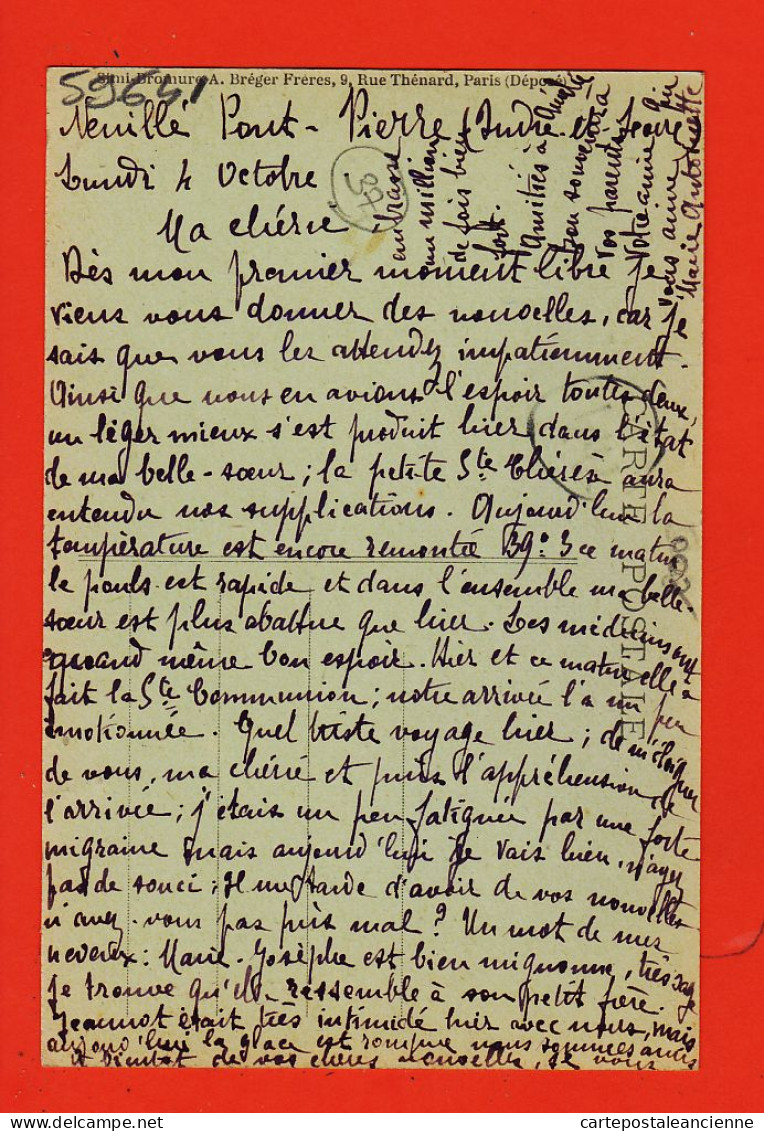 Simi-Bromure A. Bréger Frères, 9, Rue Thénard, Paris (Déposé)
59641
Neuillé Pont-Pierre (Indre et Loire)
Lundi 4 Octobre
Ma chérie
Dès mon premier moment libre je
viens vous donner des nouvelles, car je
sais que vous les attendez impatiemment.
Ainsi que nous en avions l'espoir toutes deux,
un léger mieux s'est produit hier dans l'état
de ma belle-sœur ; la petite Ste Thérèse aura
entendu nos supplications. Aujourd'hui la
température est encore remontée 39°3 ce matin
le pouls est rapide et dans l'ensemble ma belle-
sœur est plus abattue que hier. Les médecins ont
quand même bon espoir. Hier et ce matin elle a
fait la Ste Communion ; notre arrivée l'a un peu
émotionnée. Quel triste voyage hier ; de m'éloigner
de vous, ma chérie et puis l'appréhension de
l'arrivée ; j'étais un peu fatiguée par une forte
migraine mais aujourd'hui je vais bien, n'ayez
pas de souci ; il me tarde d'avoir de vos nouvelles
n'avez-vous pas pris mal ? Un mot de mes
neveux : Marie-Josèphe est bien mignonne, très sage
je trouve qu'elle ressemble à son petit frère.
Jeannot était très intimidé hier avec nous, mais
aujourd'hui la glace est rompue nous sommes amis
A bientôt de vos chères nouvelles, je vous
embrasse
un million
de fois bien
fort.
Amitiés à
bon souvenir à
vos parents
Votre amie qui
vous aime
Marie Antoinette
CARTE POSTALE
delcampe.net
cartepostaleancienne